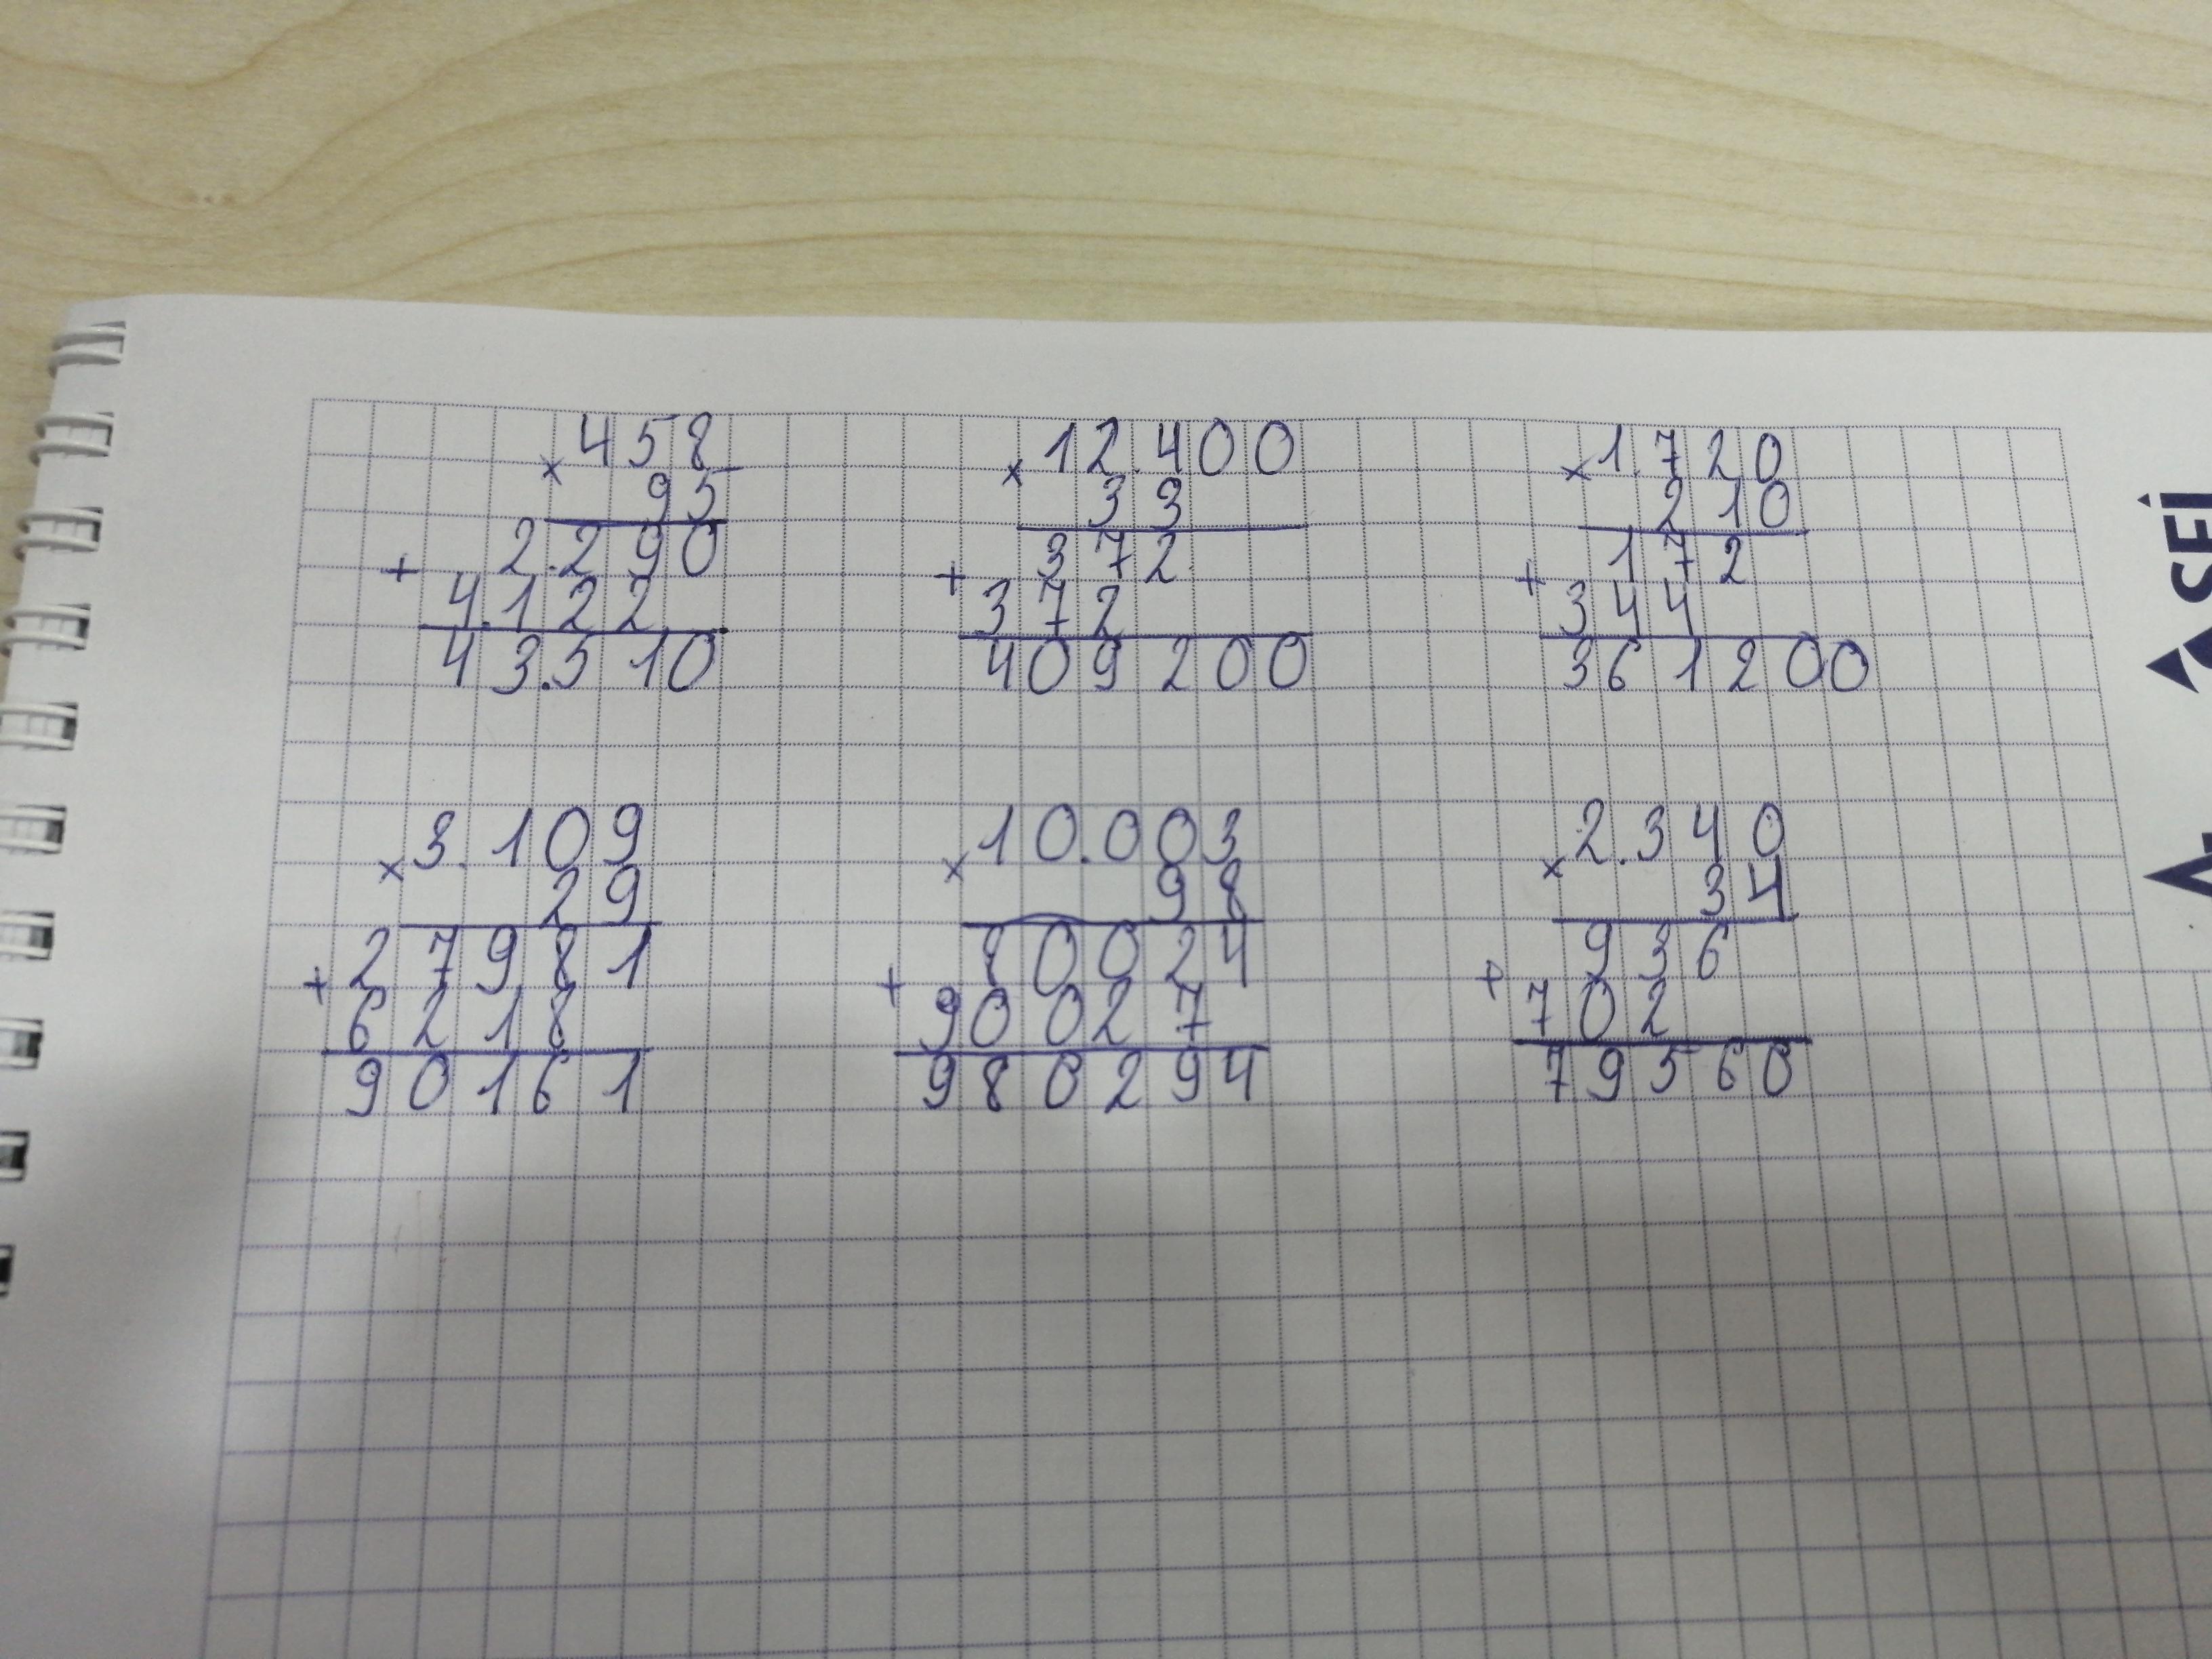 458
× 95
2.290
+ 4.122
43.510
12.400
× 33
372
+ 372
409200
1.720
× 210
172
+ 344
361200
3.109
× 29
27981
+ 6218
90161
10.003
× 98
80024
+ 90027
980294
2.340
× 34
936
+ 702
79560